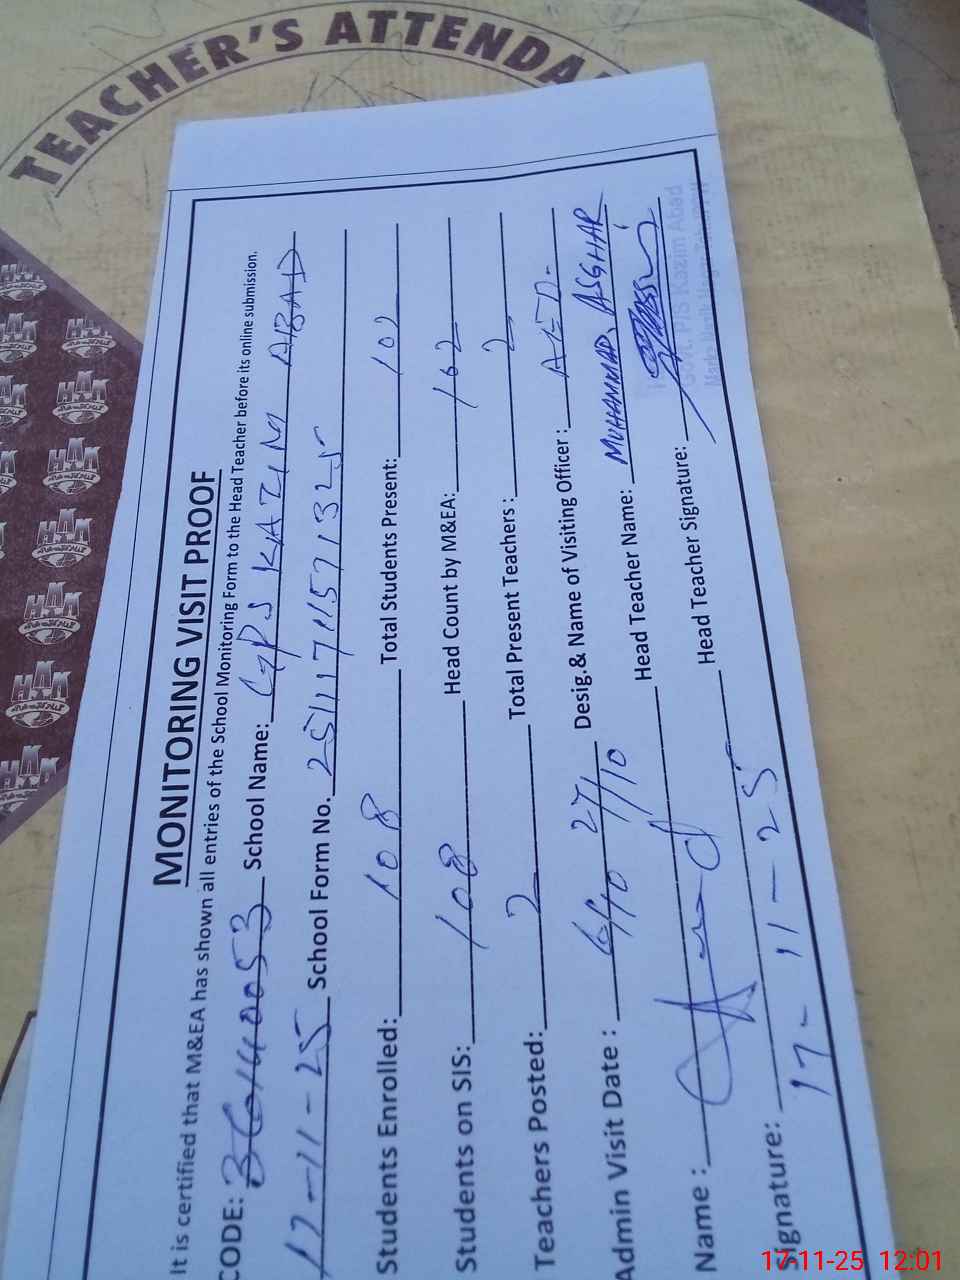 TEACHER'S ATTENDA
MONITORING VISIT PROOF
It is certified that M&EA has shown all entries of the School Monitoring Form to the Head Teacher before its online submission.
CODE: 36140053 School Name: GPS KAZIM ABAD
17-11-25 School Form No. 2511171157132
Students Enrolled: 108 Total Students Present: 102
Students on SIS: 108 Head Count by M&EA: 102
Teachers Posted: 2 Total Present Teachers: 2
Admin Visit Date: 27/10 Desig.& Name of Visiting Officer: AEO
Name: Head Teacher Name: MUHAMMAD ASGHAR
Signature: 17-11-25 Head Teacher Signature:
Govt. P/S Kazim Abad
17-11-25 12:01